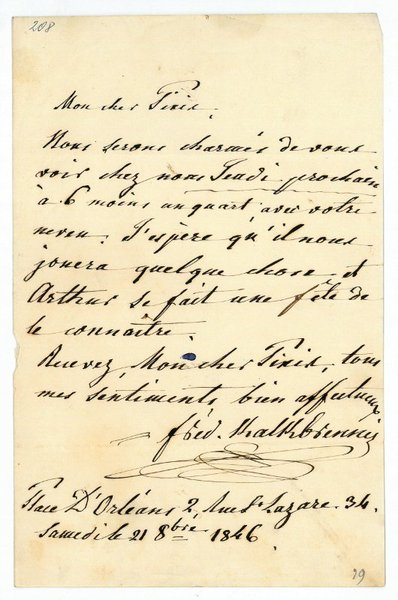 208
Mon cher Pixis,
Nous serons charmés de vous
voir chez nous Jeudi prochain
à 6 moins un quart avec votre
neveu. J'espère qu'il nous
jouera quelque chose et
Arthur se fait une fête de
le connaître.
Recevez, Mon cher Pixis, tous
mes sentiments bien affectueux
fréd. Kalkbrenner
Place D'Orléans 2, Rue St Lazare. 34.
Samedi le 21 8bre 1846.
29